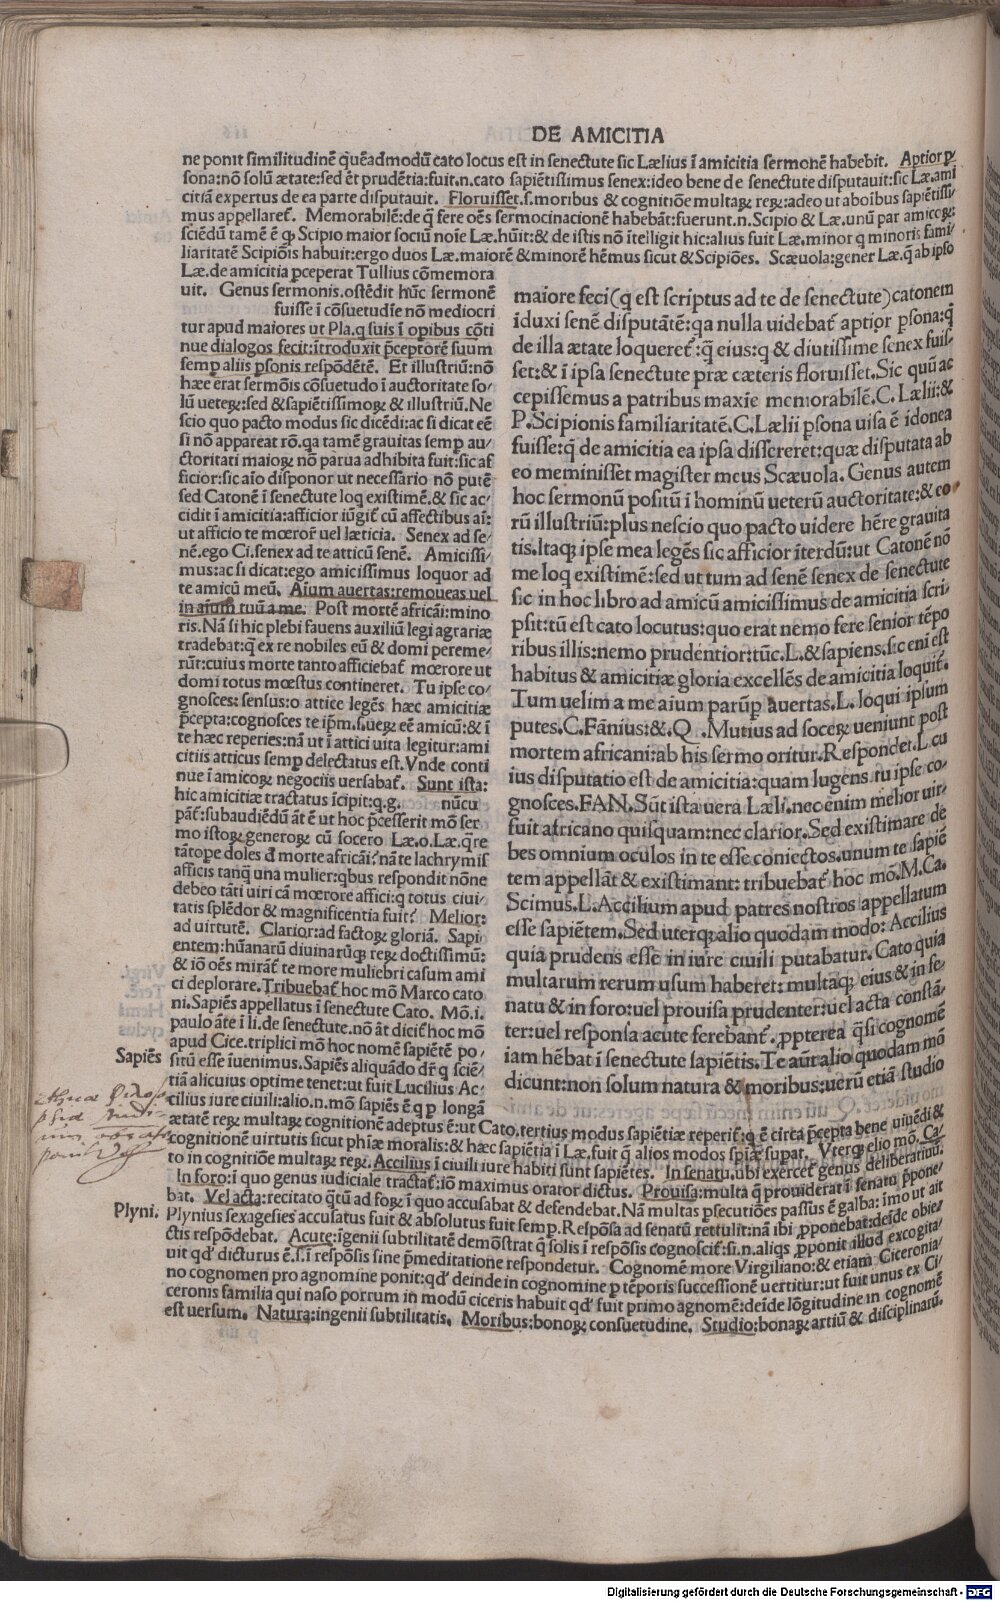 DE AMICITIA
ne ponit similitudinē quēadmodū cato locus est in senectute sic Lælius ī amicitia sermonē habebit. Aptior p̱
sona:nō solū ætate:sed ēt prudētia:fuit.n.cato sapiētissimus senex:ideo bene de senectute disputauit:sic Læ.ami
citiā expertus de ea parte disputauit. Floruisset.s.moribus & cognitiōe multaꝝ reꝝ:adeo ut aboībus sapiētissi
mus appellaret̄. Memorabilē:de q̄ fere oēs sermocinacionē habebāt:fuerunt.n.Scipio & Læ.unū par amicoꝝ:
sciēdū tamē ē ꝙ Scipio maior sociū noīe Læ.hūit:& de istis nō ītelligit hic:alius fuit Læ.minor q minoris fami/
liaritatē Scipiōis habuit:ergo duos Læ.maiorē & minorē hēmus sicut & Scipiōes. Scæuola:gener Læ.q̄ ab ipso
Læ.de amicitia p̱ceperat Tullius cōmemora
uit. Genus sermonis.ostēdit hūc sermonē
fuisse ī cōsuetudīe nō mediocri
tur apud maiores ut Pla.q suis ī opibus cōti
nue dialogos fecit:ītroduxit p̄ceptorē suum
semp̱ aliis p̱sonis respōdētē. Et illustriū:nō
hæc erat sermōis cōsuetudo ī auctoritate so/
lū ueteꝝ:sed & sapiētissimoꝝ & illustriū.Ne
scio quo pacto modus sic dicēdi:ac si dicat eē
si nō appareat rō.qa tamē grauitas semp̱ au/
ctoritati maioꝝ nō parua adhibita fuit:sic af
ficior:sic aīo disponor ut necessario nō putē
sed Catonē ī senectute loq existimē.& sic ac/
cidit ī amicitia:afficior iūgit̄ cū affectibus aī:
ut afficio te mœror̄ uel læticia. Senex ad se/
nē.ego Ci.senex ad te atticū senē. Amicissi/
mus:ac si dicat:ego amicissimus loquor ad
te amicū meū. Aīum auertas:remoueas uel
in aīum tuū a me. Post mortē africāi:mino
ris.Nā si hic plebi fauens auxiliū legi agrariæ
tradebat:q̄ ex re nobiles eū & domi pereme/
rūt:cuius morte tanto afficiebat̄ mœrore ut
domi totus mœstus contineret. Tu ipse co/
gnosces:sensus:o attice legēs hæc amicitiæ
p̄cepta:cognosces te ip̄m.s.ueꝝ eē amicū:& ī
te hæc reperies:nā ut ī attici uita legitur:ami
citiis atticus semp̱ delectatus est.Vnde conti
nue ī amicoꝝ negociis uersabat̄. Sunt ista:
hic amicitiæ tractatus īcipit:q.g. nūcu
pat̄:subaudiēdū āt ē ut hoc p̄cesserit mō ser
mo istoꝝ generoꝝ cū socero Læ.o.Læ.q̄re
tātope doles đ morte africāi?nā te lachrymis
afficis tanq̄ una mulier:qbus respondit nōne
debeo tāti uiri cā mœrore affici:q totus ciui/
tatis splēdor & magnificentia fuit? Melior:
ad uirtutē. Clarior:ad factoꝝ gloriā. Sapi
entem:hūanarū diuinarūqꝫ reꝝ doctissimū:
& iō oēs mirāt̄ te more muliebri casum ami
ci deplorare.Tribuebat̄ hoc mō Marco cato
ni.Sapiēs appellatus ī senectute Cato. Mō.i.
paulo āte ī li.de senectute.nō āt dicit̄ hoc mō
apud Cice.triplici mō hoc nomē sapiētē po/
sitū esse īuenimus.Sapiēs aliquādo dr̄ q sciē/
tiā alicuius optime tenet:ut fuit Lucilius Ac/
cilius iure ciuili:alio.n.mō sapiēs ē q p̱ longā
maiore feci(q est scriptus ad te de senectute)catonem
īduxi senē disputātē:qa nulla uidebat̄ aptior p̱sona:q̄
de illa ætate loqueret̄:q̄ eius:q & diutissime senex fuis/
set:& ī ipsa senectute præ cæteris floruisset.Sic quū ac
cepissemus a patribus maxie memorabilē.C.Lælii:&
P.Scipionis familiaritatē.C.Lælii p̱sona uisa ē idonea
fuisse:q̄ de amicitia ea ipsa dissereret:quæ disputata ab
eo meminisset magister meus Scæuola. Genus autem
hoc sermonū positū ī hominū ueterū auctoritate:& eo
rū illustriū:plus nescio quo pacto uidere hēre grauita
tis.Itaqꝫ ipse mea legēs sic afficior īterdū:ut Catonē nō
me loq existimē:sed ut tum ad senē senex de senectute
sic in hoc libro ad amicū amicissimus de amicitia scri/
psit:tū est cato locutus:quo erat nemo fere senior tēpo
ribus illis:nemo prudentior:tūc.L.& sapiens.sic eni est
habitus & amicitiæ gloria excellēs de amicitia loquit̄.
Tum uelim a me aium parūp̱ auertas.L.loqui ipsum
putes.C.Fānius:&.Q .Mutius ad soceꝝ ueniunt post
mortem africani:ab his sermo oritur.Respondet.L.cu
ius disputatio est de amicitia:quam lugens tu ipse co/
gnosces.FAN.Sūt ista uera Læli.nec enim melior uir/
fuit africano quisquam:nec clarior.Sed existimare de
bes omnium oculos in te esse coniectos.unum te sapiē
tem appellāt & existimant: tribuebat̄ hoc mō.M.Ca.
Scimus.L.Accilium apud patres nostros appellatum
esse sapiētem.Sed uterqꝫ alio quodam modo: Accilius
quia prudens esse in iure ciuili putabatur.Cato quia
multarum rerum usum haberet: multaqꝫ eius & in se/
natu & in foro:uel prouisa prudenter:uel acta constā/
ter:uel responsa acute ferebant̄.p̱pterea q̄si cognomē
iam hēbat ī senectute sapiētis.Te aūt alio quodam mō
dicunt:non solum natura & moribus:uerū etiā studio
Sapiēs
ætatē reꝝ multaꝝ cognitionē adeptus ē:ut Cato.tertius modus sapiētiæ reperit̄:q ē circa p̄cepta bene uiuēdi &
cognitionē uirtutis sicut phiæ moralis:& hæc sapiētia ī Læ.fuit q̄ alios modos sp̄iæ supat. Vterqꝫ elio mō.Ca/
to in cognitiōe multaꝝ reꝝ.Accilius ī ciuili iure habiti sunt sapiētes. In senatu.ubi exercet̄ genus deliberatiuū.
In foro:ī quo genus iudiciale tractat̄:iō maximus orator dictus. Prouisa:multa q̄ prouiderat ī senatu p̱pone/
bat. Vel acta:recitato q̄tū ad foꝝ ī quo accusabat & defendebat.Nā multas p̱secutiōes passus ē galba:imo ut ait
Plyni.
Plynius sexagesies accusatus fuit & absolutus fuit semp̱.Respōsa ad senatū rettulit:nā ibi p̱ponebat:deīde obie/
ctis respōdebat. Acute:īgenii subtilitatē demōstrat q̄ solis ī respōsis cognoscit̄:si.n.aliqs p̱ponit illud excogita/
uit qđ dicturus ē.s.ī respōsis sine p̄meditatione respondetur. Cognomē more Virgiliano:& etiam Ciceronia/
no cognomen pro agnomine ponit:qđ deinde in cognomine p̱ tēporis successionē uertitur:ut fuit unus ex Ci/
ceronis familia qui naso porrum in modū ciceris habuit qđ fuit primo agnomē:deīde lōgitudine in cognomē
est uersum. Natura:ingenii subtilitatis. Moribus:bonoꝝ consuetudine. Studio:bonaꝝ artiū & disciplinarū.
Digitalisierung gefördert durch die Deutsche Forschungsgemeinschaft - DFG